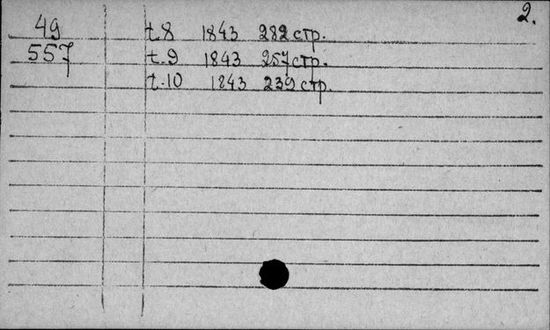 2.
49 t.8 1843 282 стр.
557 t.9 1843 257 стр.
t.10 1843 239 стр.